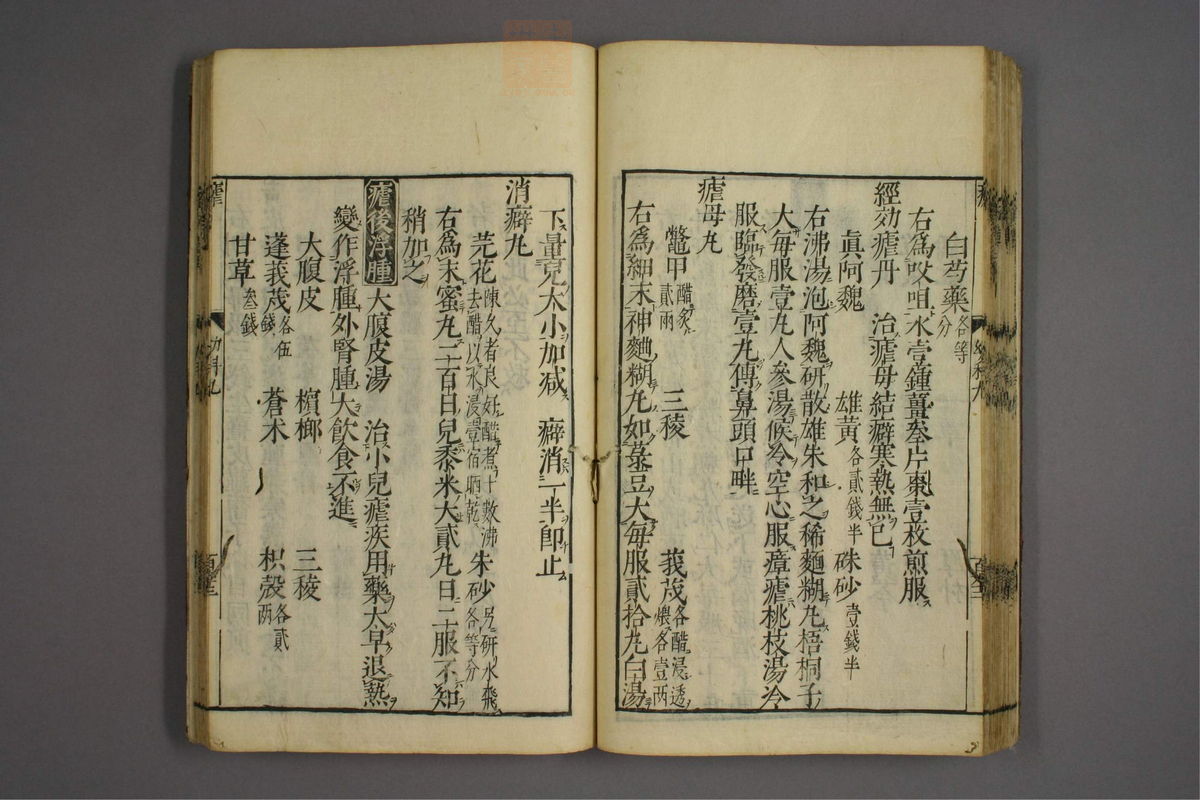 白芍藥各等分
右爲㕮咀水壹鍾薑叄片棗壹枚煎服
經効瘧丹　治瘧母結癖寒熱無已
眞阿魏　雄黃各貳錢半　硃砂壹錢半
右沸湯泡阿魏研散雄朱和之稀麵糊丸梧桐子
大每服壹丸人參湯候冷空心服瘴瘧桃枝湯冷
服臨發磨壹丸傅鼻頭口畔
瘧母丸
鼈甲醋炙貳兩　三稜　莪茂各醋浸透煨各壹兩
右爲細末神麯糊丸如菉豆大每服貳拾丸白湯
下量兒大小加減　癖消一半卽止
消癖丸
芫花陳久者良好醋煮十數沸去醋以水浸壹宿晒乾　朱砂另研水飛各等分
右爲末蜜丸二百日兒黍米大貳丸日二服不知
稍加之
瘧後浮腫　大腹皮湯　治小兒瘧疾用藥太早退熱
變作浮腫外腎腫大飲食不進
大腹皮　檳榔　三稜
蓬莪茂各伍錢　蒼朮　枳殼各貳兩
甘草叄錢